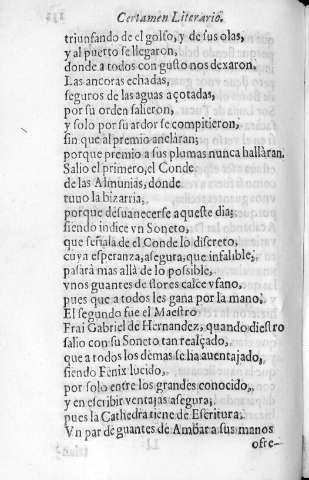 Certamen Literario.
triunfando de el golfo, y de sus olas,
y al puerto se llegaron,
donde a todos con gusto nos dexaron.
Las ancoras echadas,
seguros de las aguas açotadas,
por su orden salieron,
y solo por su ardor se compitieron,
sin que al premio anelàran;
porque premio a sus plumas nunca hallàran.
Salio el primero, el Conde
de las Almunias, dónde
tuuo la bizarria,
porque desuanecerse aqueste dia;
siendo indice vn Soneto,
que señala de el Conde lo discreto,
cuya esperanza, asegura, que infalible,
pasarà mas allà de lo possible,
vnos guantes de flores calce vfano,
pues que a todos les gana por la mano.
El segundo fue el Maestro
Frai Gabriel de Hernandez, quando diestro
salio con su Soneto tan realçado,
que a todos los demas se ha auentajado,
siendo Fenix lucido,
por solo entre los grandes conocido,
y en escribir ventajas asegura;
pues la Cathedra tiene de Escritura.
Vn par de guantes de Ambar a sus manos
ofre-